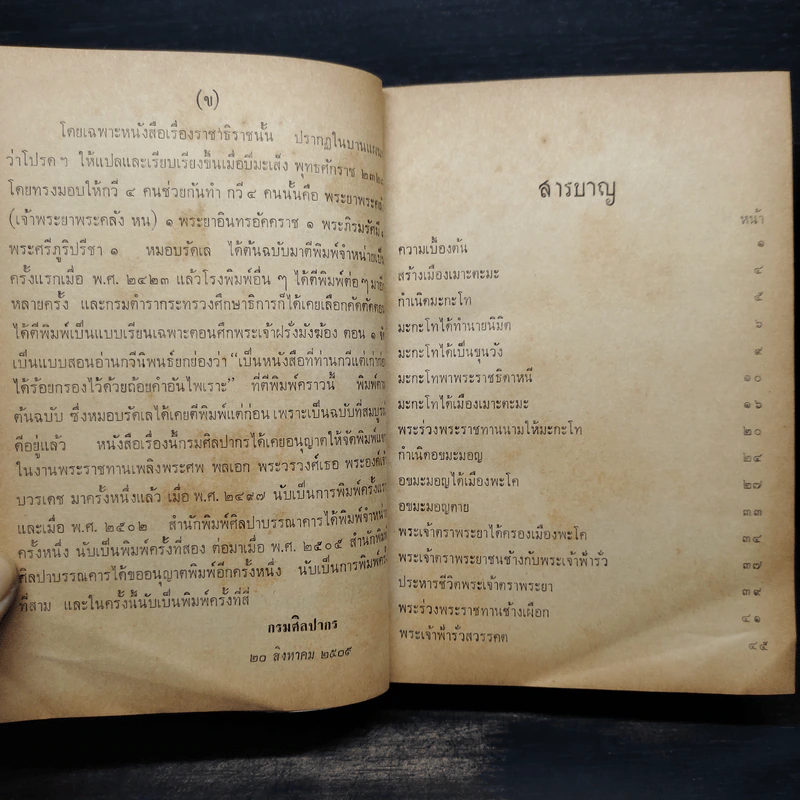 (ข)
โดยเฉพาะหนังสือเรื่องราชาธิราชนั้น ปรากฏในบานแผนก
ว่าโปรดฯ ให้แปลและเรียบเรียงขึ้นเมื่อปีมะเส็ง พุทธศักราช ๒๓๒๘
โดยทรงมอบให้กวี ๔ คนช่วยกันทำ กวี ๔ คนนั้นคือ พระยาพระคลัง
(เจ้าพระยาพระคลัง หน) ๑ พระยาอินทรอัคคราช ๑ พระภิรมรัศมี ๑
พระศรีภูริปรีชา ๑ หมอบรัดเล ได้ต้นฉบับมาตีพิมพ์จำหน่ายเป็น
ครั้งแรกเมื่อ พ.ศ. ๒๔๒๓ แล้วโรงพิมพ์อื่น ๆ ได้ตีพิมพ์ต่อๆ มาอีก
หลายครั้ง และกรมตำรากระทรวงศึกษาธิการก็ได้เคยเลือกคัดตัดตอน
ได้ตีพิมพ์เป็นแบบเรียนเฉพาะตอนศึกพระเจ้าฝรั่งมังฆ้อง ตอน ๑
เป็นแบบสอนอ่านกวีนิพนธ์ยกย่องว่า “เป็นหนังสือที่ท่านกวีแต่เก่าก่อน
ได้ร้อยกรองไว้ด้วยถ้อยคำอันไพเราะ” ที่ตีพิมพ์คราวนี้ พิมพ์ตาม
ต้นฉบับ ซึ่งหมอบรัดเลได้เคยตีพิมพ์แต่ก่อน เพราะเป็นฉบับที่สมบูรณ์
ดีอยู่แล้ว หนังสือเรื่องนี้กรมศิลปากรได้เคยอนุญาตให้จัดพิมพ์แจก
ในงานพระราชทานเพลิงพระศพ พลเอก พระวรวงศ์เธอ พระองค์เจ้า
บวรเดช มาครั้งหนึ่งแล้ว เมื่อ พ.ศ. ๒๔๙๗ นับเป็นการพิมพ์ครั้งแรก
และเมื่อ พ.ศ. ๒๕๐๒ สำนักพิมพ์ศิลปาบรรณาคารได้พิมพ์จำหน่าย
ครั้งหนึ่ง นับเป็นพิมพ์ครั้งที่สอง ต่อมาเมื่อ พ.ศ. ๒๕๐๕ สำนักพิมพ์
ศิลปาบรรณาคารได้ขออนุญาตพิมพ์อีกครั้งหนึ่ง นับเป็นการพิมพ์ครั้ง
ที่สาม และในครั้งนี้นับเป็นพิมพ์ครั้งที่สี่
กรมศิลปากร
๒๐ สิงหาคม ๒๕๐๙
สารบาญ
หน้า
ความเบื้องต้น ๑
สร้างเมืองเมาะตะมะ ๔
กำเนิดมะกะโท ๕
มะกะโทได้ทำนายนิมิต ๖
มะกะโทได้เป็นขุนวัง ๙
มะกะโทพาพระราชธิดาหนี ๑๐
มะกะโทได้เมืองเมาะตะมะ ๑๖
พระร่วงพระราชทานนามให้มะกะโท ๒๐
กำเนิดอขะมะมอญ ๒๔
อขะมะมอญได้เมืองพะโค ๒๗
อขะมะมอญตาย ๓๓
พระเจ้าตราพระยาได้ครองเมืองพะโค ๓๔
พระเจ้าตราพระยาชนช้างกับพระเจ้าฟ้ารั่ว ๓๗
ประหารชีวิตพระเจ้าตราพระยา ๓๙
พระร่วงพระราชทานช้างเผือก ๔๑
พระเจ้าฟ้ารั่วสวรรคต ๔๕